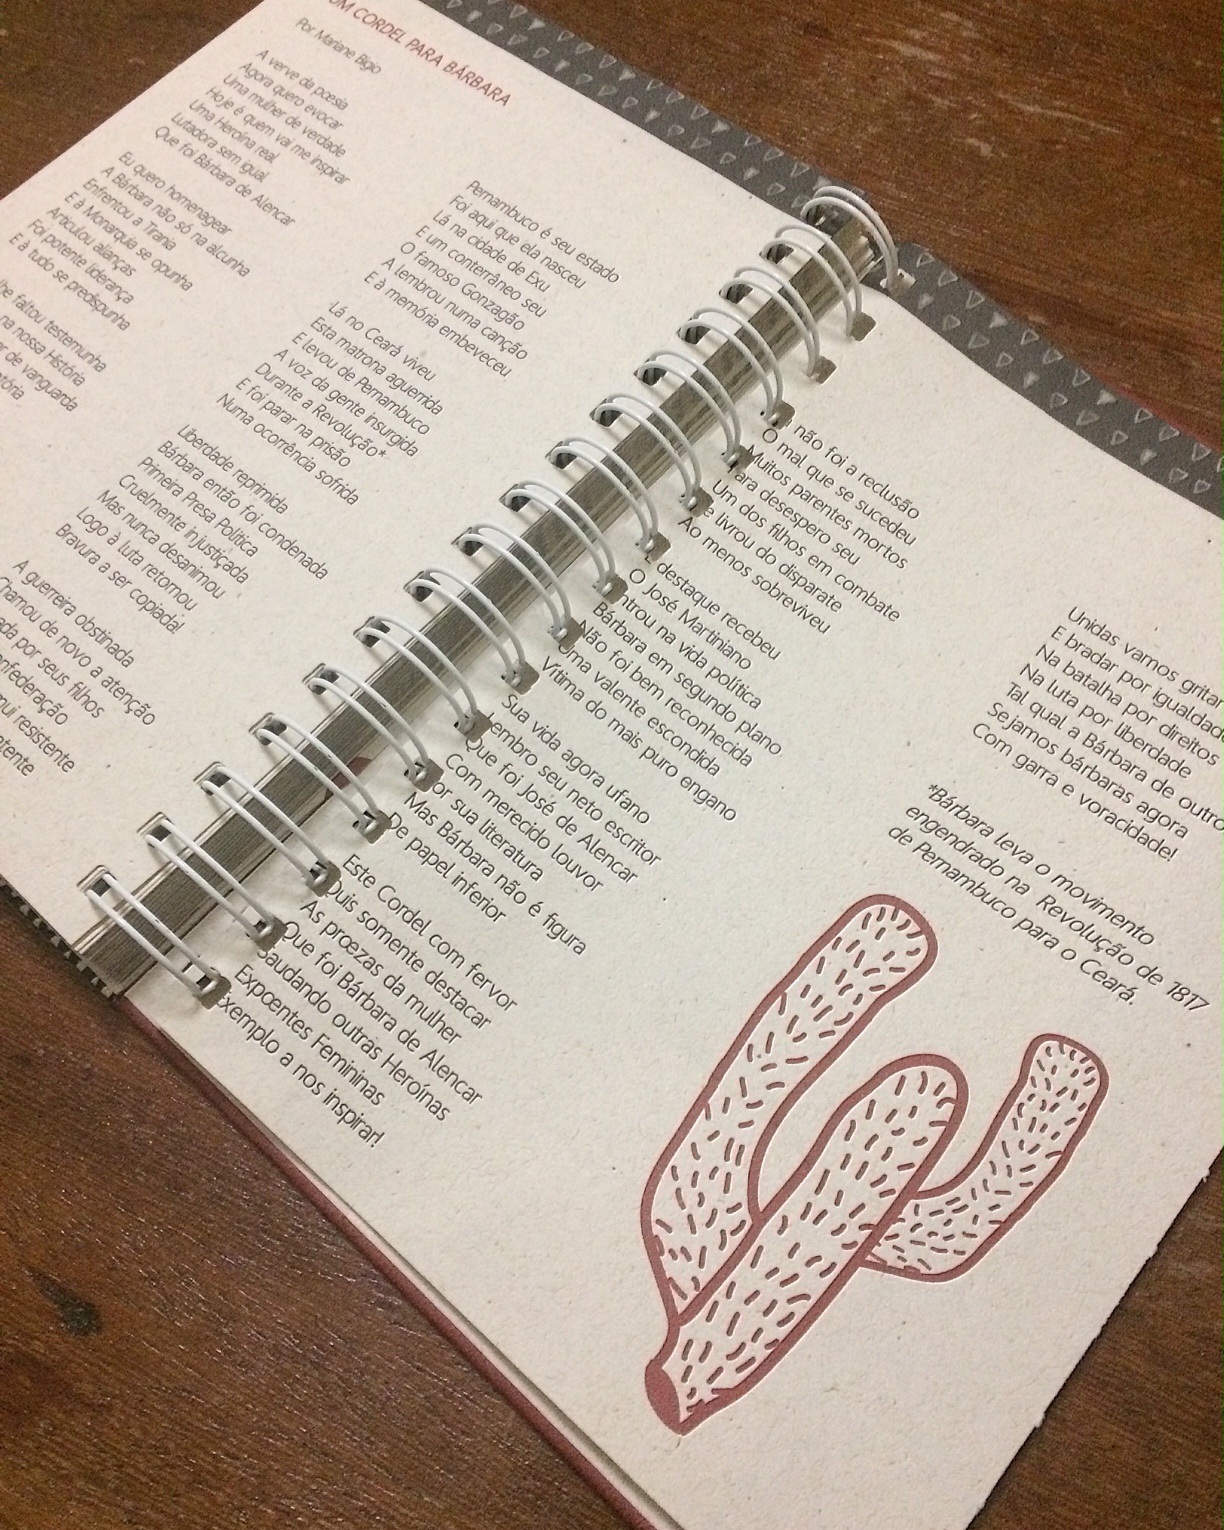 UM CORDEL PARA BÁRBARA
Por Mariane Bigio
A verve da poesia
Agora quero evocar
Uma mulher de verdade
Hoje é quem vai me inspirar
Uma Heroína real
Lutadora sem igual
Que foi Bárbara de Alencar
Eu quero homenagear
A Bárbara não só na alcunha
Enfrentou a Tirania
E à Monarquia se opunha
Articulou alianças
Foi potente liderança
E à tudo se predispunha
faltou testemunha
na nossa História
de vanguarda
Pernambuco é seu estado
Foi aqui que ela nasceu
Lá na cidade de Exu
E um conterrâneo seu
O famoso Gonzagão
A lembrou numa canção
E à memória embeveceu
Lá no Ceará viveu
Esta matrona aguerrida
E levou de Pernambuco
A voz da gente insurgida
Durante a Revolução*
E foi parar na prisão
Numa ocorrência sofrida
Liberdade reprimida
Bárbara então foi condenada
Primeira Presa Política
Cruelmente injustiçada
Mas nunca desanimou
Logo à luta retornou
Bravura a ser copiada!
A guerreira obstinada
Chamou de novo a atenção
por seus filhos
resistente
não foi a reclusão
O mal que se sucedeu
Muitos parentes mortos
Para desespero seu
Um dos filhos em combate
Se livrou do disparate
Ao menos sobreviveu
destaque recebeu
O José Martiniano
Entrou na vida política
Bárbara em segundo plano
Não foi bem reconhecida
Uma valente escondida
Vítima do mais puro engano
Sua vida agora ufano
Lembro seu neto escritor
Que foi José de Alencar
Com merecido louvor
Por sua literatura
Mas Bárbara não é figura
De papel inferior
Este Cordel com fervor
Quis somente destacar
As proezas da mulher
Que foi Bárbara de Alencar
Saudando outras Heroínas
Expoentes Femininas
Exemplo a nos inspirar!
Unidas vamos gritar
E bradar por igualdade
Na batalha por direitos
Na luta por liberdade
Tal qual a Bárbara de outro
Sejamos bárbaras agora
Com garra e voracidade!
*Bárbara leva o movimento
engendrado na Revolução de 1817
de Pernambuco para o Ceará.